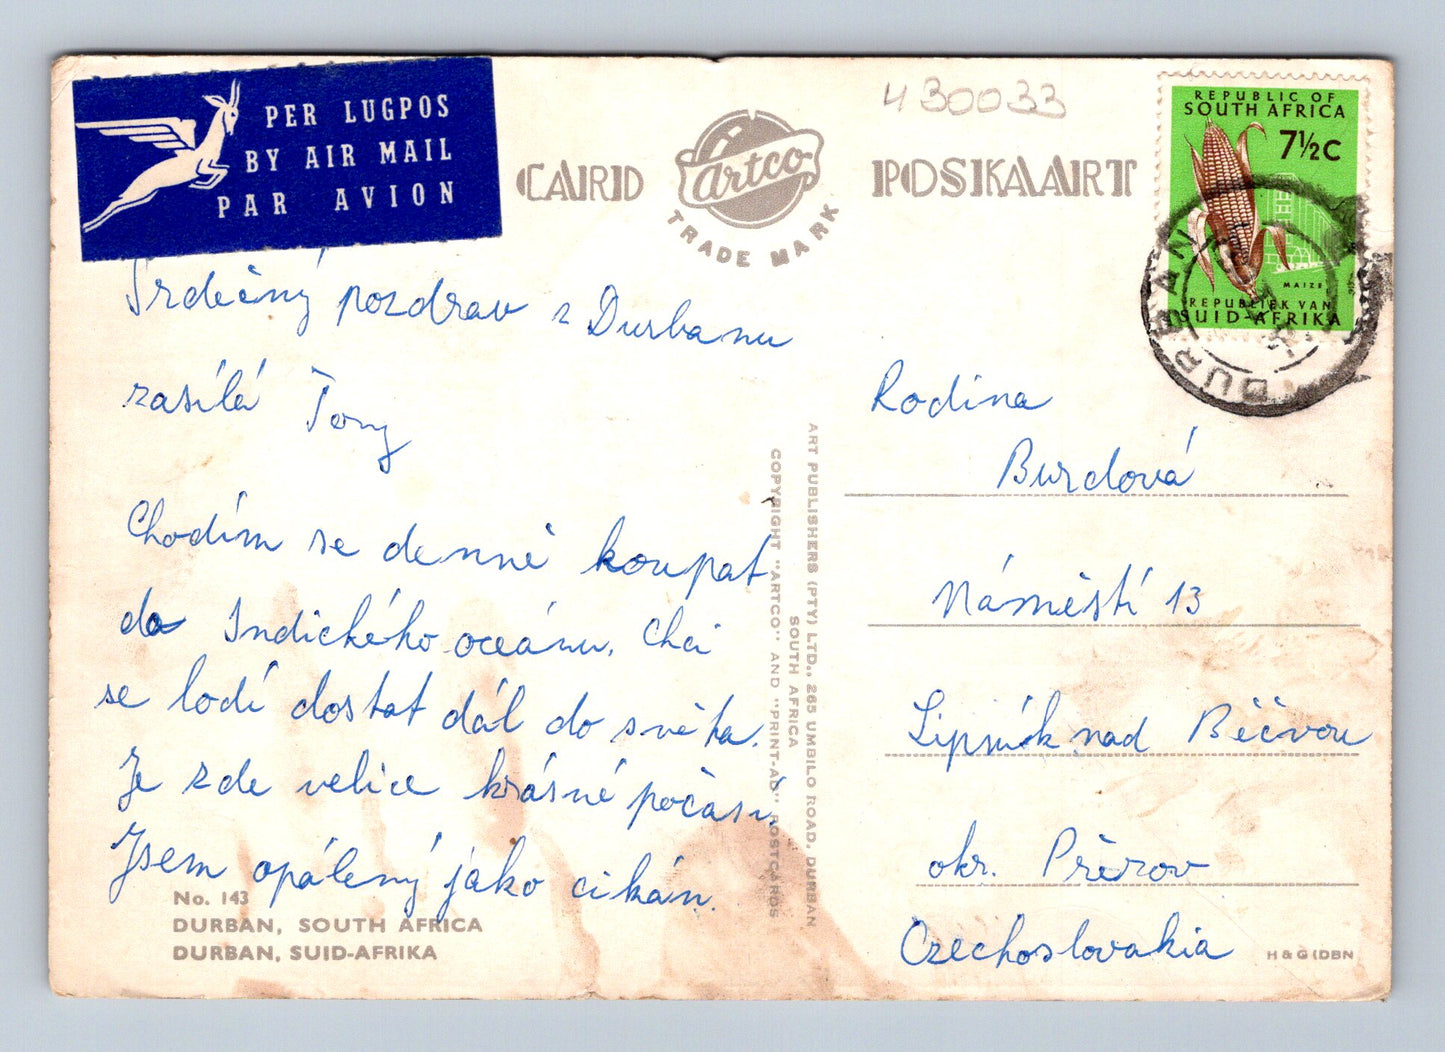 PER LUGPOS
BY AIR MAIL
PAR AVION
CARD
Artco
TRADE MARK
POSKAART
430033
REPUBLIC OF
SOUTH AFRICA
7½c
MAIZE
REPUBLIEK VAN
SUID-AFRIKA
DURBAN
Srdečný pozdrav z Durbanu
zasílá Tony
Chodím se denně koupat
do Indického oceánu. Chci
se lodí dostat dál do světa.
Je zde velice krásné počasí.
Jsem opálený jako cikán.
No. 143
DURBAN, SOUTH AFRICA
DURBAN, SUID-AFRIKA
ART PUBLISHERS (PTY) LTD., 265 UMBILO ROAD, DURBAN
SOUTH AFRICA
COPYRIGHT "ARTCO" AND "PRINT-AD" POSTCARDS
Rodina
Burdová
Náměstí 13
Lipník nad Bečvou
okr. Přerov
Czechoslovakia
H & G (DBN